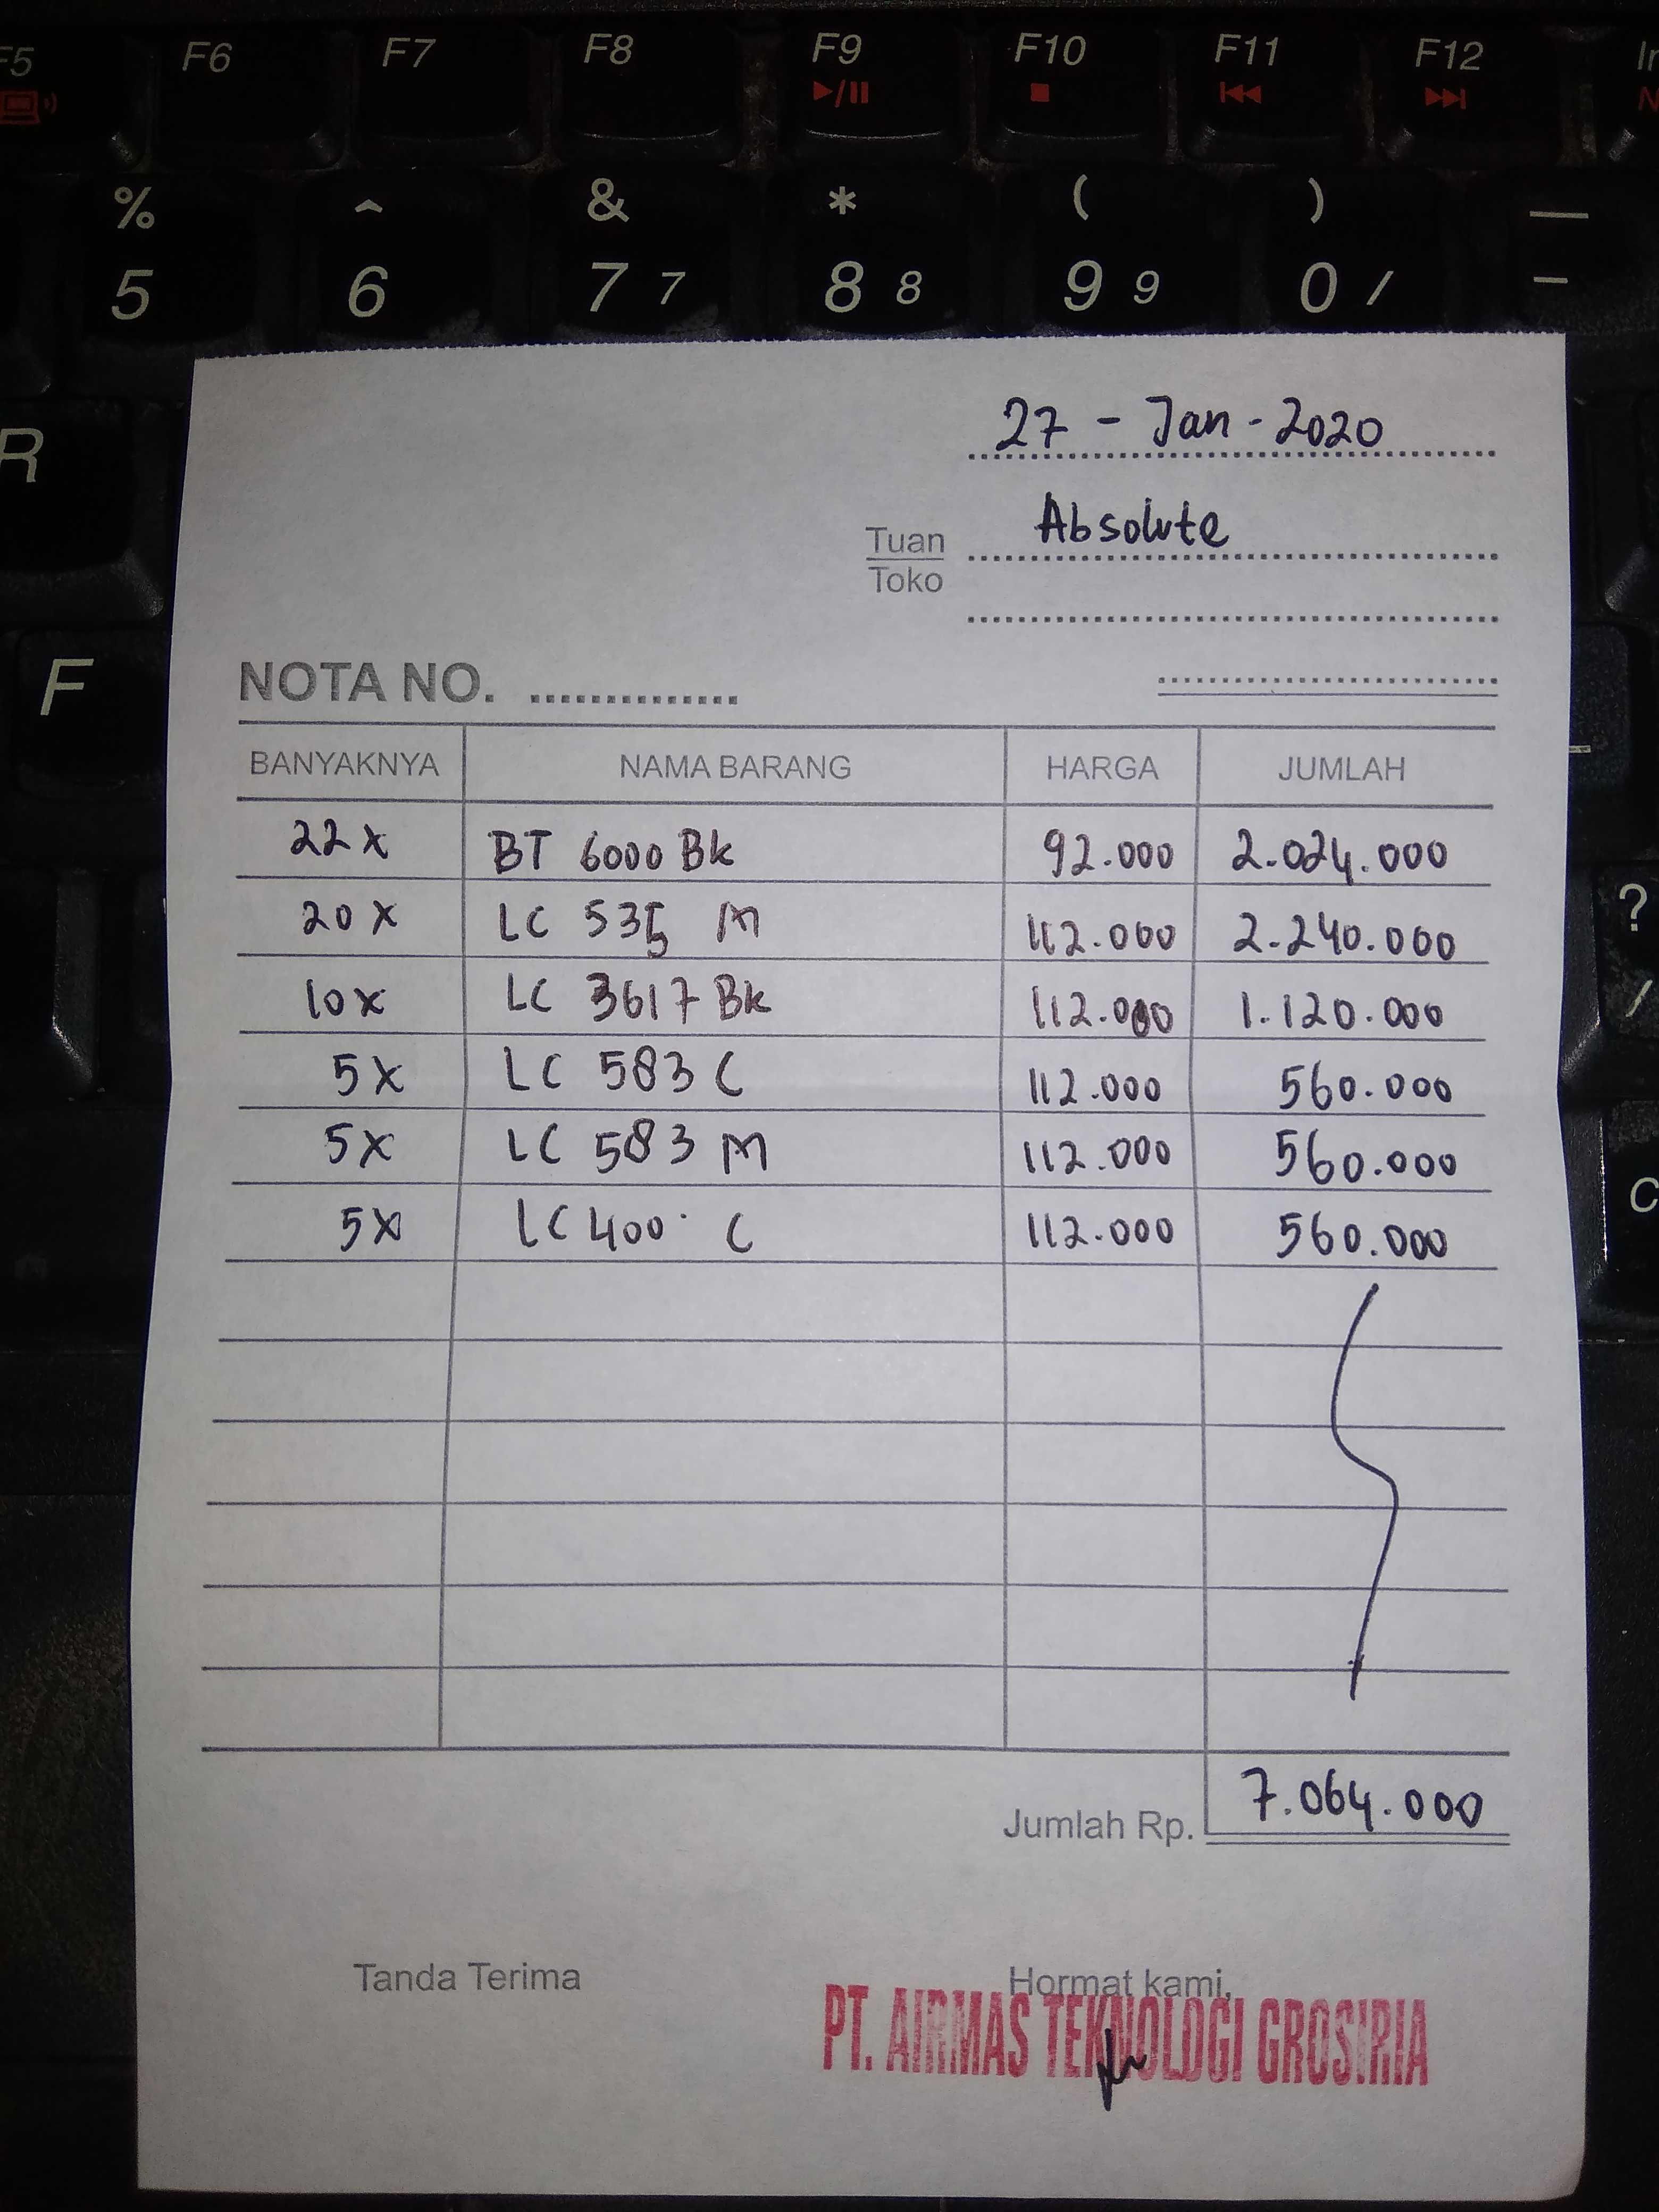 F5 F6 F7 F8 F9 F10 F11 F12
% ^ & * ( ) —
5 6 7 7 8 8 9 9 0 / -
R
F
?
/
C
27 - Jan - 2020
Tuan Absolute
Toko
NOTA NO. ..............
BANYAKNYA NAMA BARANG HARGA JUMLAH
22 x BT 6000 Bk 92.000 2.024.000
20 x LC 535 M 112.000 2.240.000
10 x LC 3617 Bk 112.000 1.120.000
5 x LC 583 C 112.000 560.000
5 x LC 583 M 112.000 560.000
5 x LC 400 C 112.000 560.000
Jumlah Rp. 7.064.000
Tanda Terima Hormat kami,
PT. AIRMAS TEKNOLOGI GROSIRIA